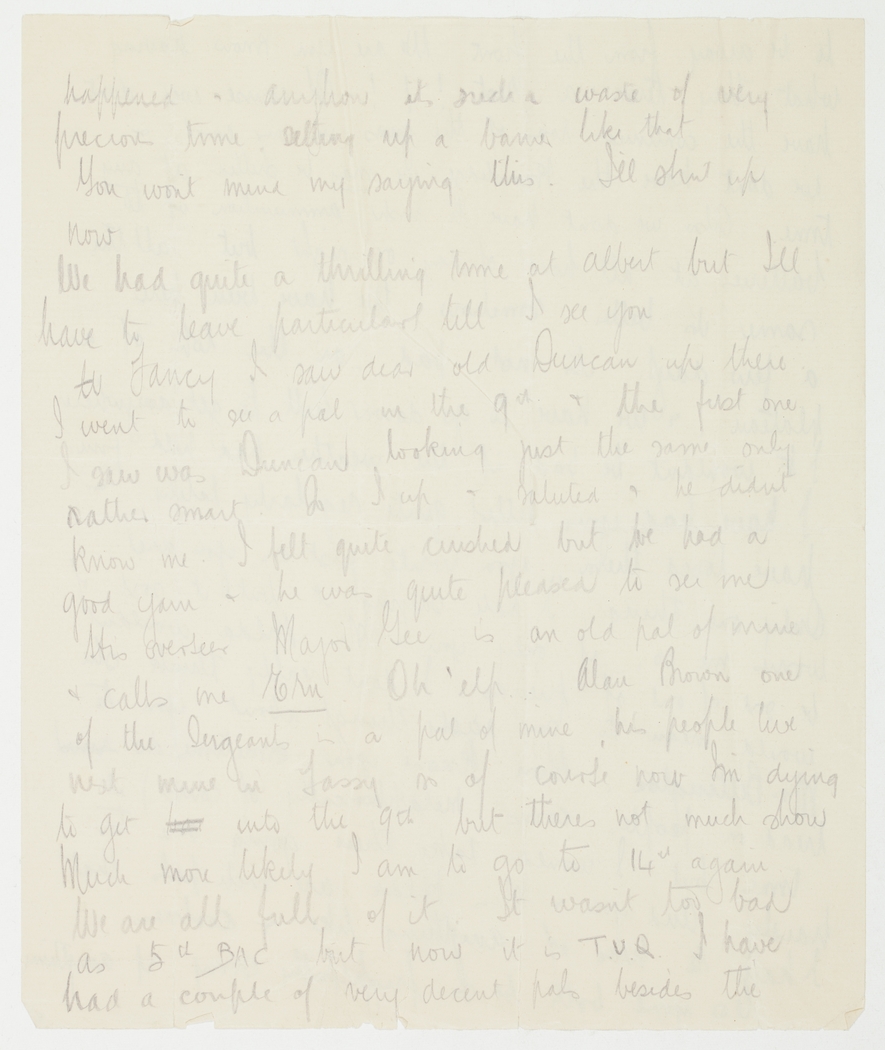 happened & anyhow its such a waste of very
precious time setting up a barrier like that
You wont mind my saying this. I'll shut up
now
We had quite a thrilling time at Albert but Ill
have to leave particulars till I see you
Fancy I saw dear old Duncan up there.
I went to see a pal in the 9th & the first one
I saw was Duncan looking just the same only
rather smart. So I up & saluted & he didnt
know me. I felt quite crushed but we had a
good yarn & he was quite pleased to see me
His overseer Major Gee is an old pal of mine
& calls me Ern Oh 'elp. Alan Brown one
of the Sergeants is a pal of mine, his people live
next mine in Tassy so of course now Im dying
to get into the 9th but theres not much show
Much more likely I am to go to 14th again
We are all full of it. It wasnt too bad
as 5th BAC but now it is T.U.Q. I have
had a couple of very decent pals besides the